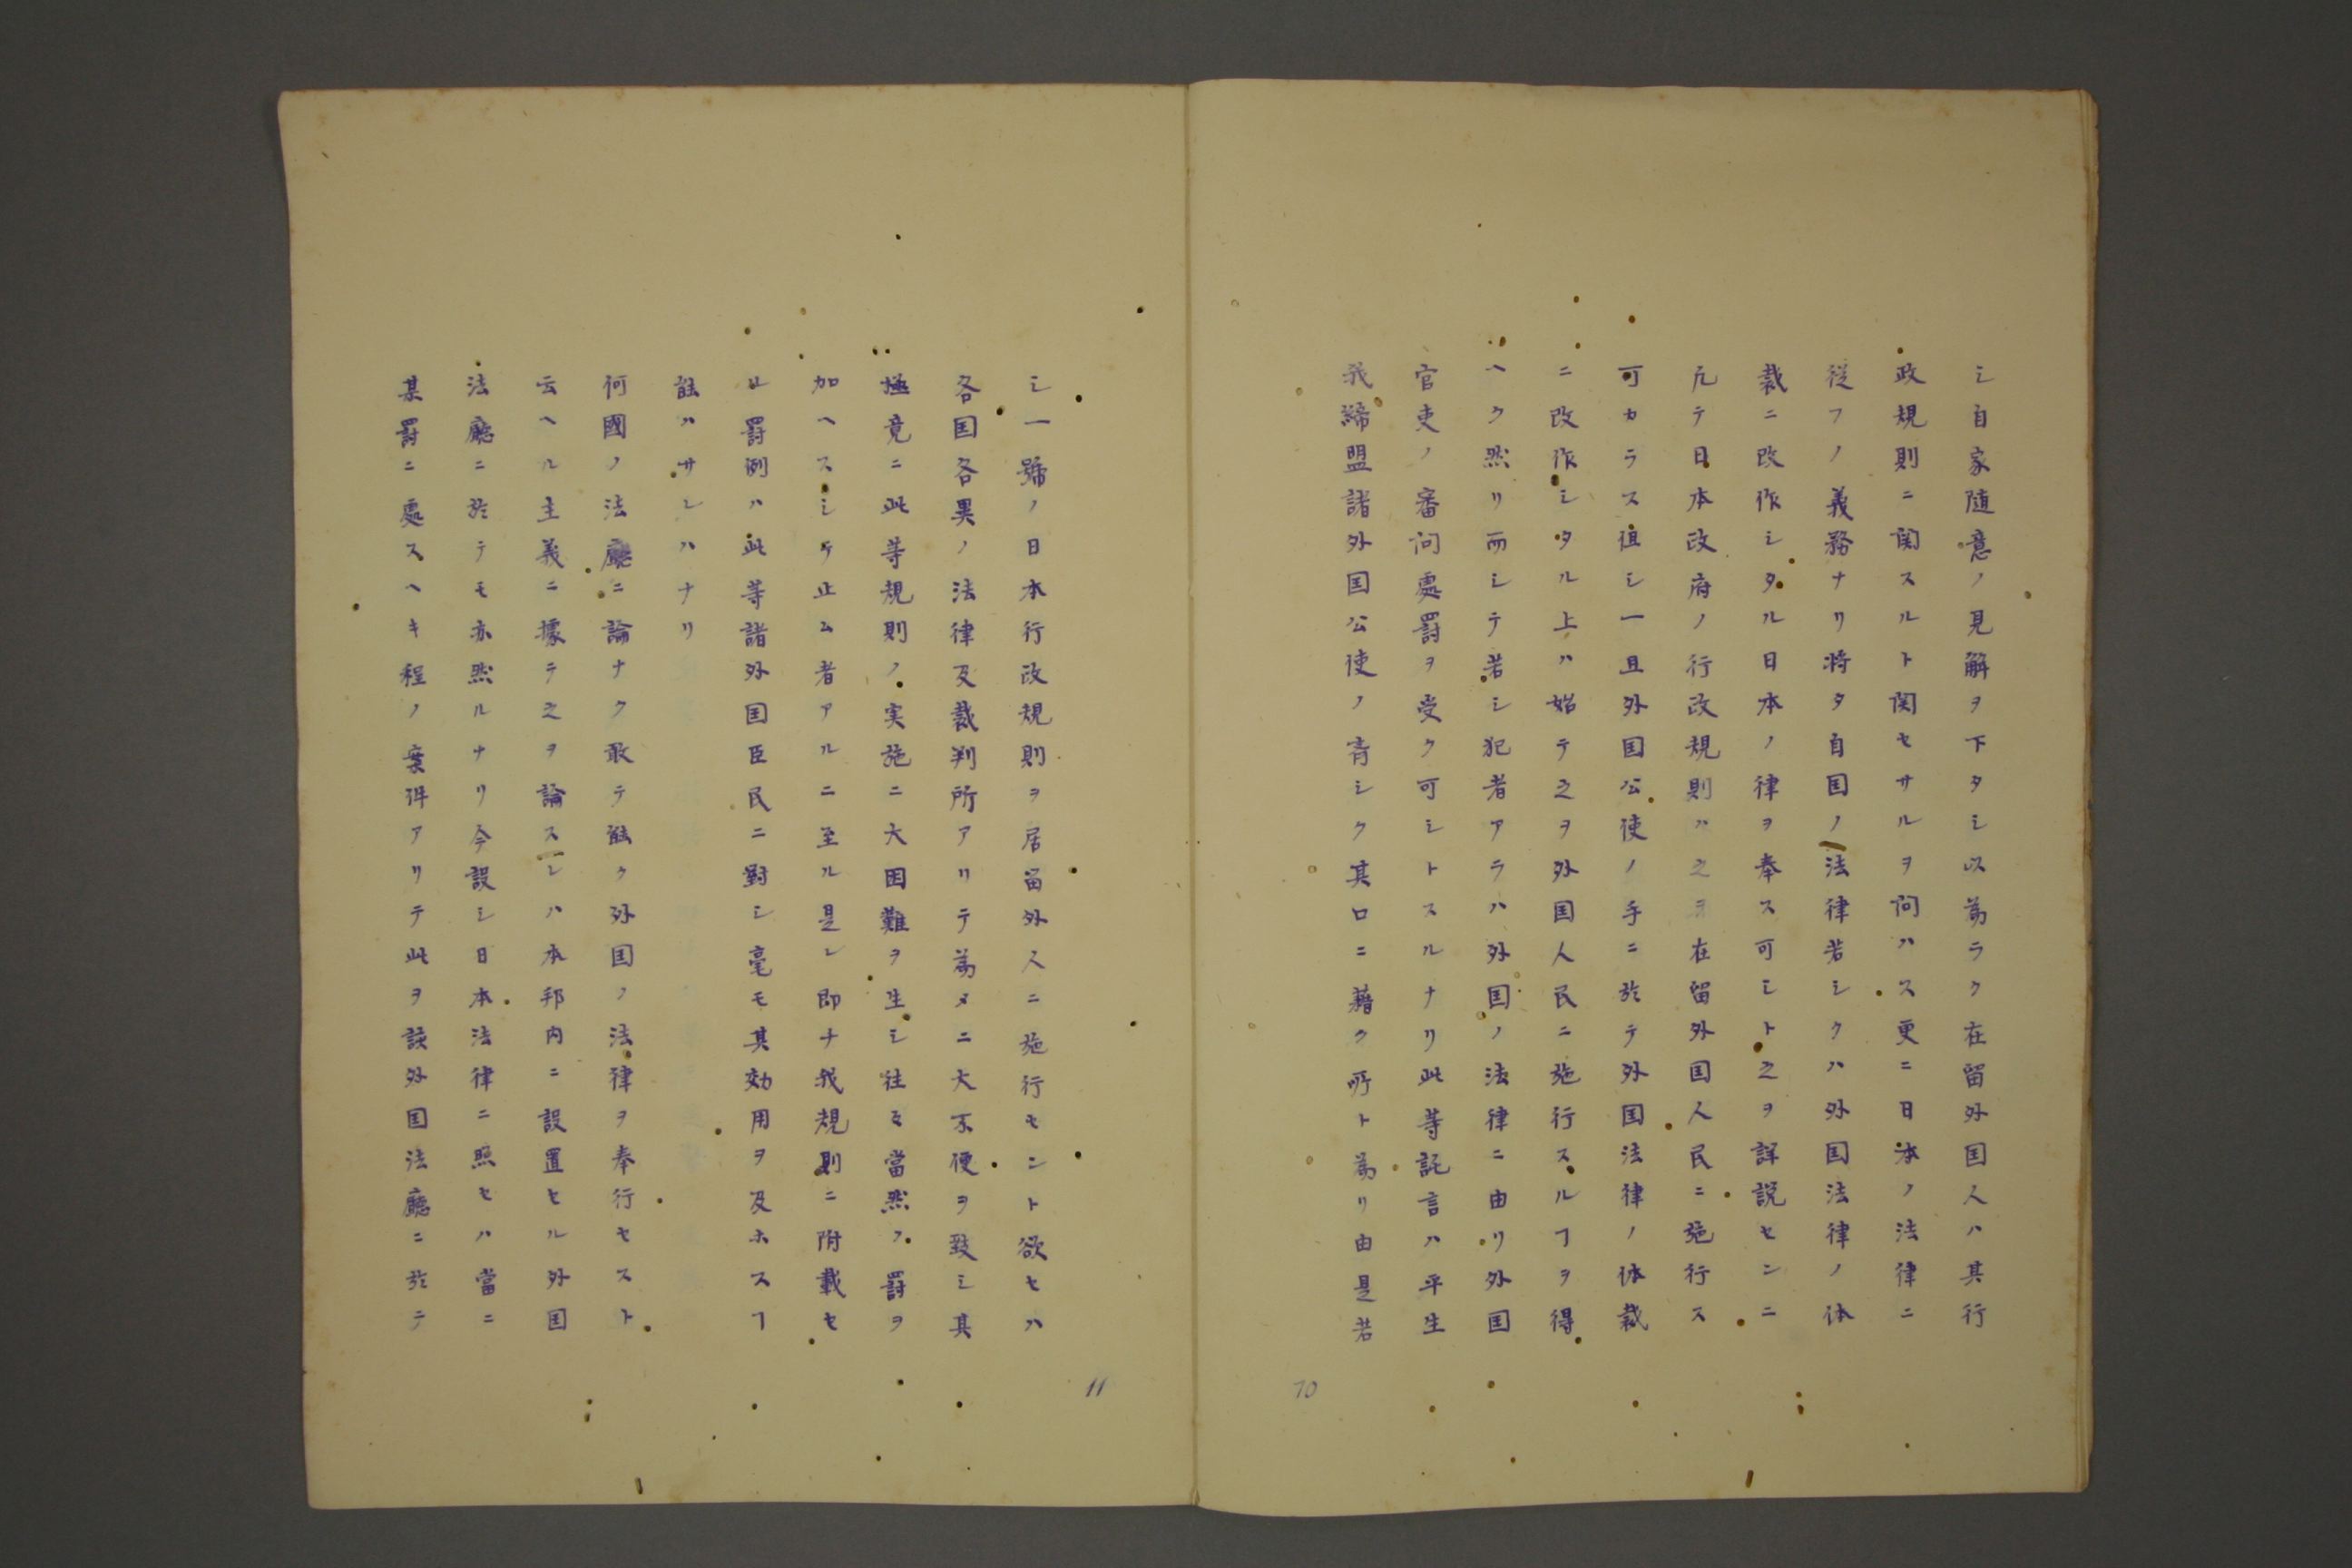 シ自家随意ノ見解ヲ下タシ以為ラク在留外国人ハ其行
政規則ニ関スルト関セサルヲ問ハス更ニ日本ノ法律ニ
従フノ義務ナリ将タ自国ノ法律若シクハ外国法律ノ体
裁ニ改作シタル日本ノ律ヲ奉ス可シト之ヲ詳説センニ
凡テ日本政府ノ行政規則ハ之ヲ在留外国人民ニ施行ス
可カラス但シ一旦外国公使ノ手ニ於テ外国法律ノ体裁
ニ改作シタル上ハ始テ之ヲ外国人民ニ施行スルヿヲ得
ヘク然リ而シテ若シ犯者アラハ外国ノ法律ニ由リ外国
官吏ノ審問處罰ヲ受ク可シトスルナリ此等託言ハ平生
我締盟諸外国公使ノ斉シク其口ニ藉ク所ト為リ由是若
10
シ一號ノ日本行政規則ヲ居留外人ニ施行セント欲セハ
各国各異ノ法律及裁判所アリテ為メニ大不便ヲ致シ其
極竟ニ此等規則ノ実施ニ大困難ヲ生シ往々當然ノ罰ヲ
加ヘスシテ止ム者アルニ至ル是レ即ナ我規則ニ附載セ
ル罰例ハ此等諸外国臣民ニ對シ毫モ其効用ヲ及ホスヿ
能ハサレハナリ
何國ノ法廳ニ論ナク敢テ能ク外国ノ法律ヲ奉行セスト
云ヘル主義ニ據テ之ヲ論スレハ本邦内ニ設置セル外国
法廳ニ於テモ亦然ルナリ今設シ日本法律ニ照セハ當ニ
某罰ニ處スヘキ程ノ案件アリテ此ヲ該外国法廳ニ於テ
11